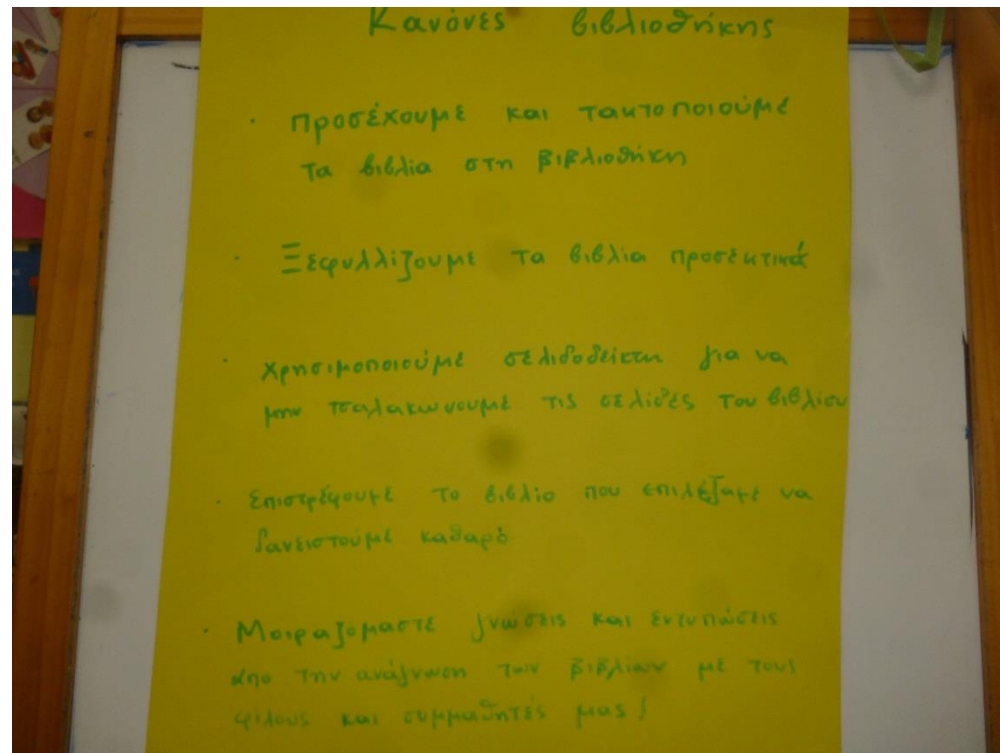 Κανόνες βιβλιοθήκης
· Προσέχουμε και τακτοποιούμε
τα βιβλία στη βιβλιοθήκη
· Ξεφυλλίζουμε τα βιβλία προσεκτικά
· Χρησιμοποιούμε σελιδοδείκτη για να
μην τσαλακώνουμε τις σελίδες του βιβλίου
· Επιστρέφουμε το βιβλίο που επιλέξαμε να
δανειστούμε καθαρό
· Μοιραζόμαστε γνώσεις και εντυπώσεις
απο την ανάγνωση των βιβλίων με τους
φίλους και συμμαθητές μας!